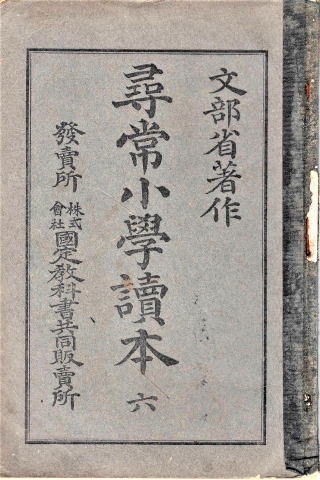 文部省著作
尋常小學讀本 六
發賣所 株式會社 國定敎科書共同販賣所